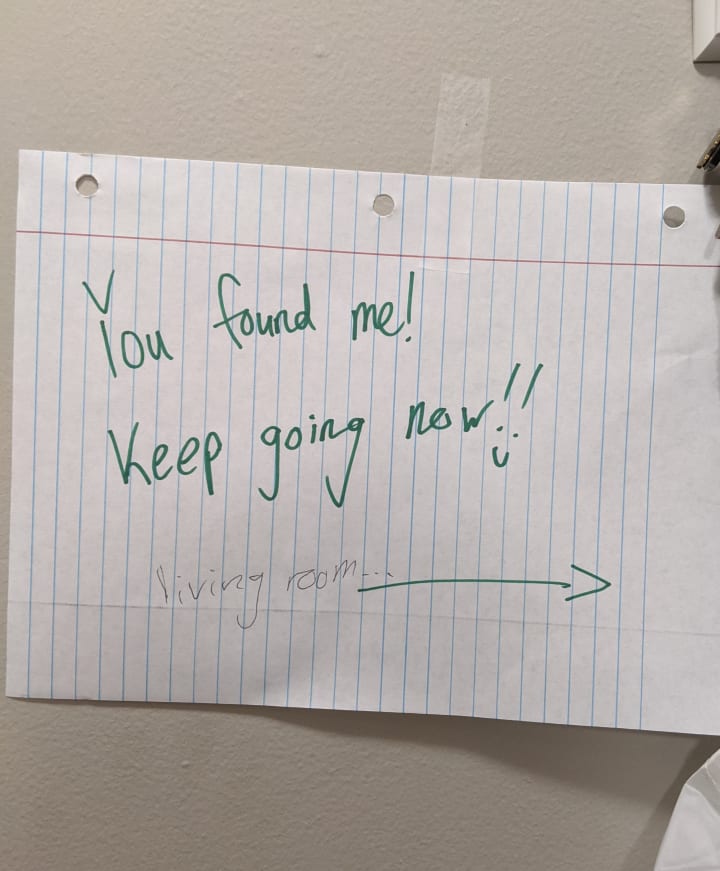 You found me!
Keep going now!!
living room...